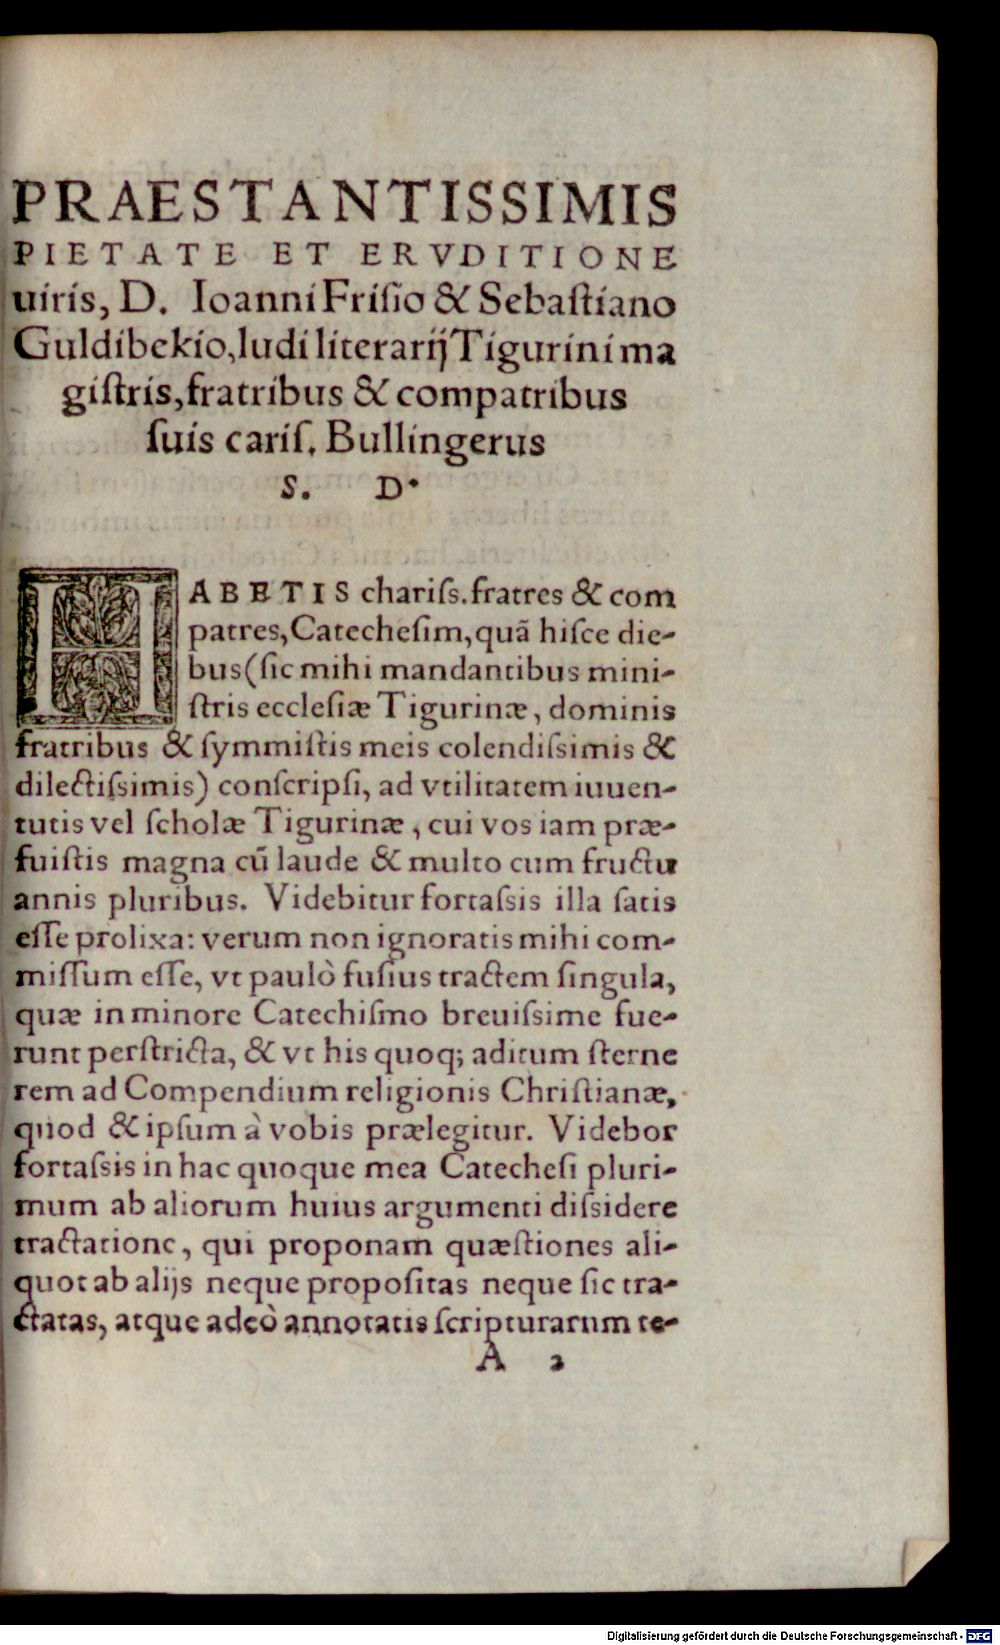 PRAESTANTISSIMIS
PIETATE ET ERVDITIONE
uiris, D. Ioanni Friſio & Sebaſtiano
Guldibekio, ludi literarij Tigurini ma
giſtris, fratribus & compatribus
ſuis cariſ. Bullingerus
S. D.
HABETIS chariſs. fratres & com
patres, Catecheſim, quã hiſce die-
bus (ſic mihi mandantibus mini-
ſtris eccleſiæ Tigurinæ, dominis
fratribus & ſymmiſtis meis colendiſsimis &
dilectiſsimis) conſcripſi, ad vtilitatem iuuen-
tutis vel ſcholæ Tigurinæ, cui vos iam præ-
fuiſtis magna cū laude & multo cum fructu
annis pluribus. Videbitur fortaſsis illa ſatis
eſſe prolixa: verum non ignoratis mihi com-
miſſum eſſe, vt paulò fuſius tractem ſingula,
quæ in minore Catechiſmo breuiſsime fue-
runt perſtricta, & vt his quoq; aditum ſterne
rem ad Compendium religionis Chriſtianæ,
quod & ipſum à vobis prælegitur. Videbor
fortaſsis in hac quoque mea Catecheſi pluri-
mum ab aliorum huius argumenti diſsidere
tractatione, qui proponam quæſtiones ali-
quot ab alijs neque propoſitas neque ſic tra-
ctatas, atque adeò annotatis ſcripturarum te-
A 2
Digitalisierung gefördert durch die Deutsche Forschungsgemeinschaft - DFG